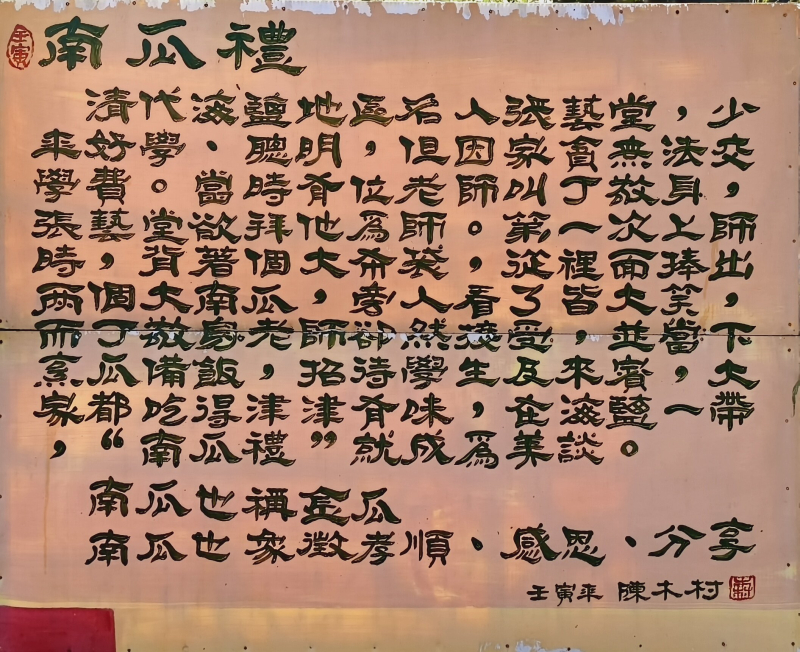 南瓜禮
清代海鹽地區名人張藝堂，少
年好學、聰明，但因家貧無法交
學費。當時有位老師叫丁敬身，
張藝堂欲拜他為師。第一次上師
時，背著個大布袋，從裡面捧出
兩個大南瓜，旁人看了皆大笑，
而丁敬身老師卻然接受，並當下
烹瓜備飯，招待學生及來賓，大
家都吃得津津有味，在海鹽一帶
，“南瓜禮”就成為美談。
南瓜也稱金瓜
南瓜也象徵孝順、感恩、分享
壬寅年 陳木村
壬寅